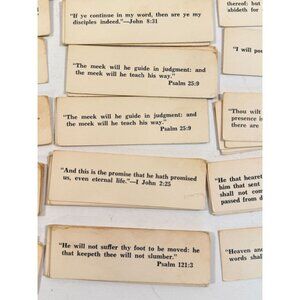 "If ye continue in my word, then are ye my
disciples indeed."—John 8:31
"The meek will he guide in judgment: and
the meek will he teach his way."
Psalm 25:9
"The meek will he guide in judgment: and
the meek will he teach his way."
Psalm 25:9
"And this is the promise that he hath promised
us, even eternal life."—I John 2:25
"He will not suffer thy foot to be moved: he
that keepeth thee will not slumber."
Psalm 121:3
thereof: but
abideth for
"I will pou
"Thou wilt
presence is
there are
"He that heareth
him that sent
shall not com
passed from d
"Heaven and
words shall